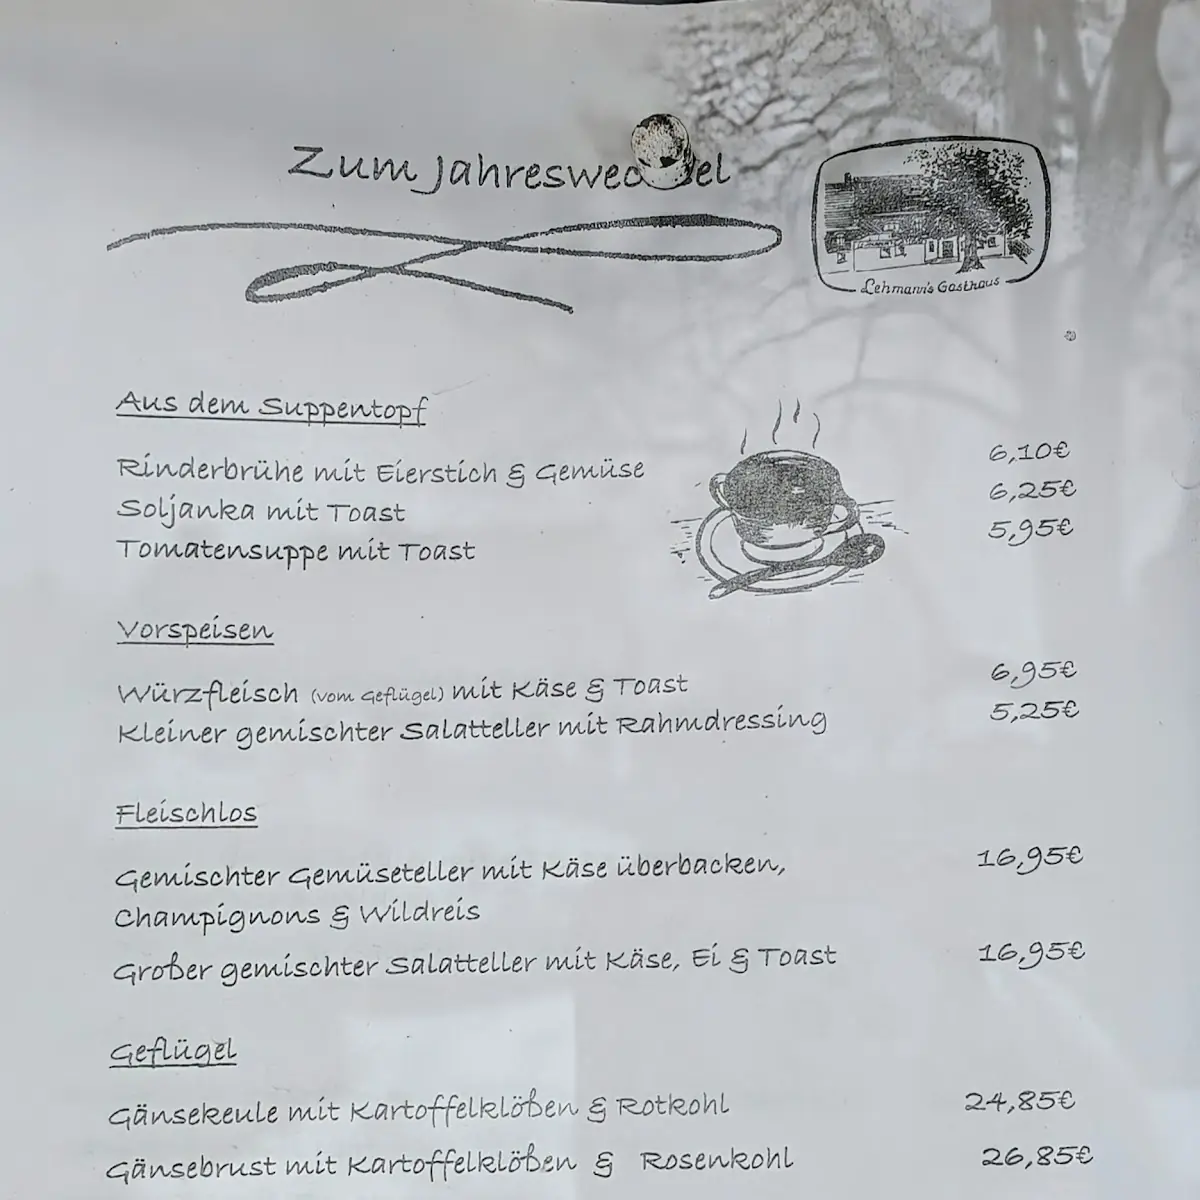 Zum Jahreswechsel
Lehmann's Gasthaus
Aus dem Suppentopf
Rinderbrühe mit Eierstich & Gemüse 6,10€
Soljanka mit Toast 6,25€
Tomatensuppe mit Toast 5,95€
Vorspeisen
Würzfleisch (vom Geflügel) mit Käse & Toast 6,95€
Kleiner gemischter Salatteller mit Rahmdressing 5,25€
Fleischlos
Gemischter Gemüseteller mit Käse überbacken, 16,95€
Champignons & Wildreis
Großer gemischter Salatteller mit Käse, Ei & Toast 16,95€
Geflügel
Gänsekeule mit Kartoffelklößen & Rotkohl 24,85€
Gänsebrust mit Kartoffelklößen & Rosenkohl 26,85€